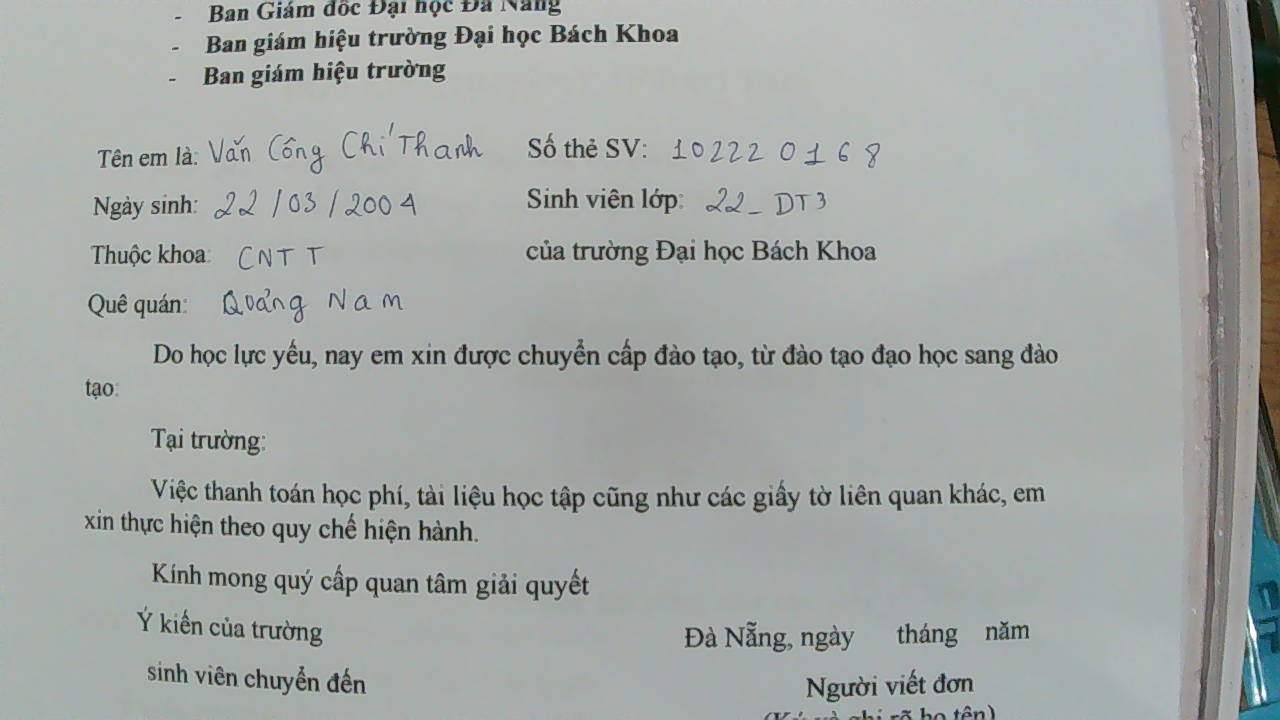 - Ban Giám đốc Đại học Đà Nẵng
- Ban giám hiệu trường Đại học Bách Khoa
- Ban giám hiệu trường
Tên em là: Văn Công Chí Thanh Số thẻ SV: 102220168
Ngày sinh: 22/03/2004 Sinh viên lớp: 22_DT3
Thuộc khoa: CNTT của trường Đại học Bách Khoa
Quê quán: Quảng Nam
Do học lực yếu, nay em xin được chuyển cấp đào tạo, từ đào tạo đạo học sang đào
tạo:
Tại trường:
Việc thanh toán học phí, tài liệu học tập cũng như các giấy tờ liên quan khác, em
xin thực hiện theo quy chế hiện hành.
Kính mong quý cấp quan tâm giải quyết
Ý kiến của trường Đà Nẵng, ngày tháng năm
sinh viên chuyển đến Người viết đơn
(Ký và ghi rõ họ tên)